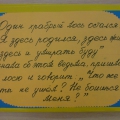 Один храбрый лось остался.
"Я здесь родился, здесь жи
здесь и умирать буду"
нала об этом ведьма, пришла
лосю и говорит "Что же
ты не ушел? Не боишься
меня?"